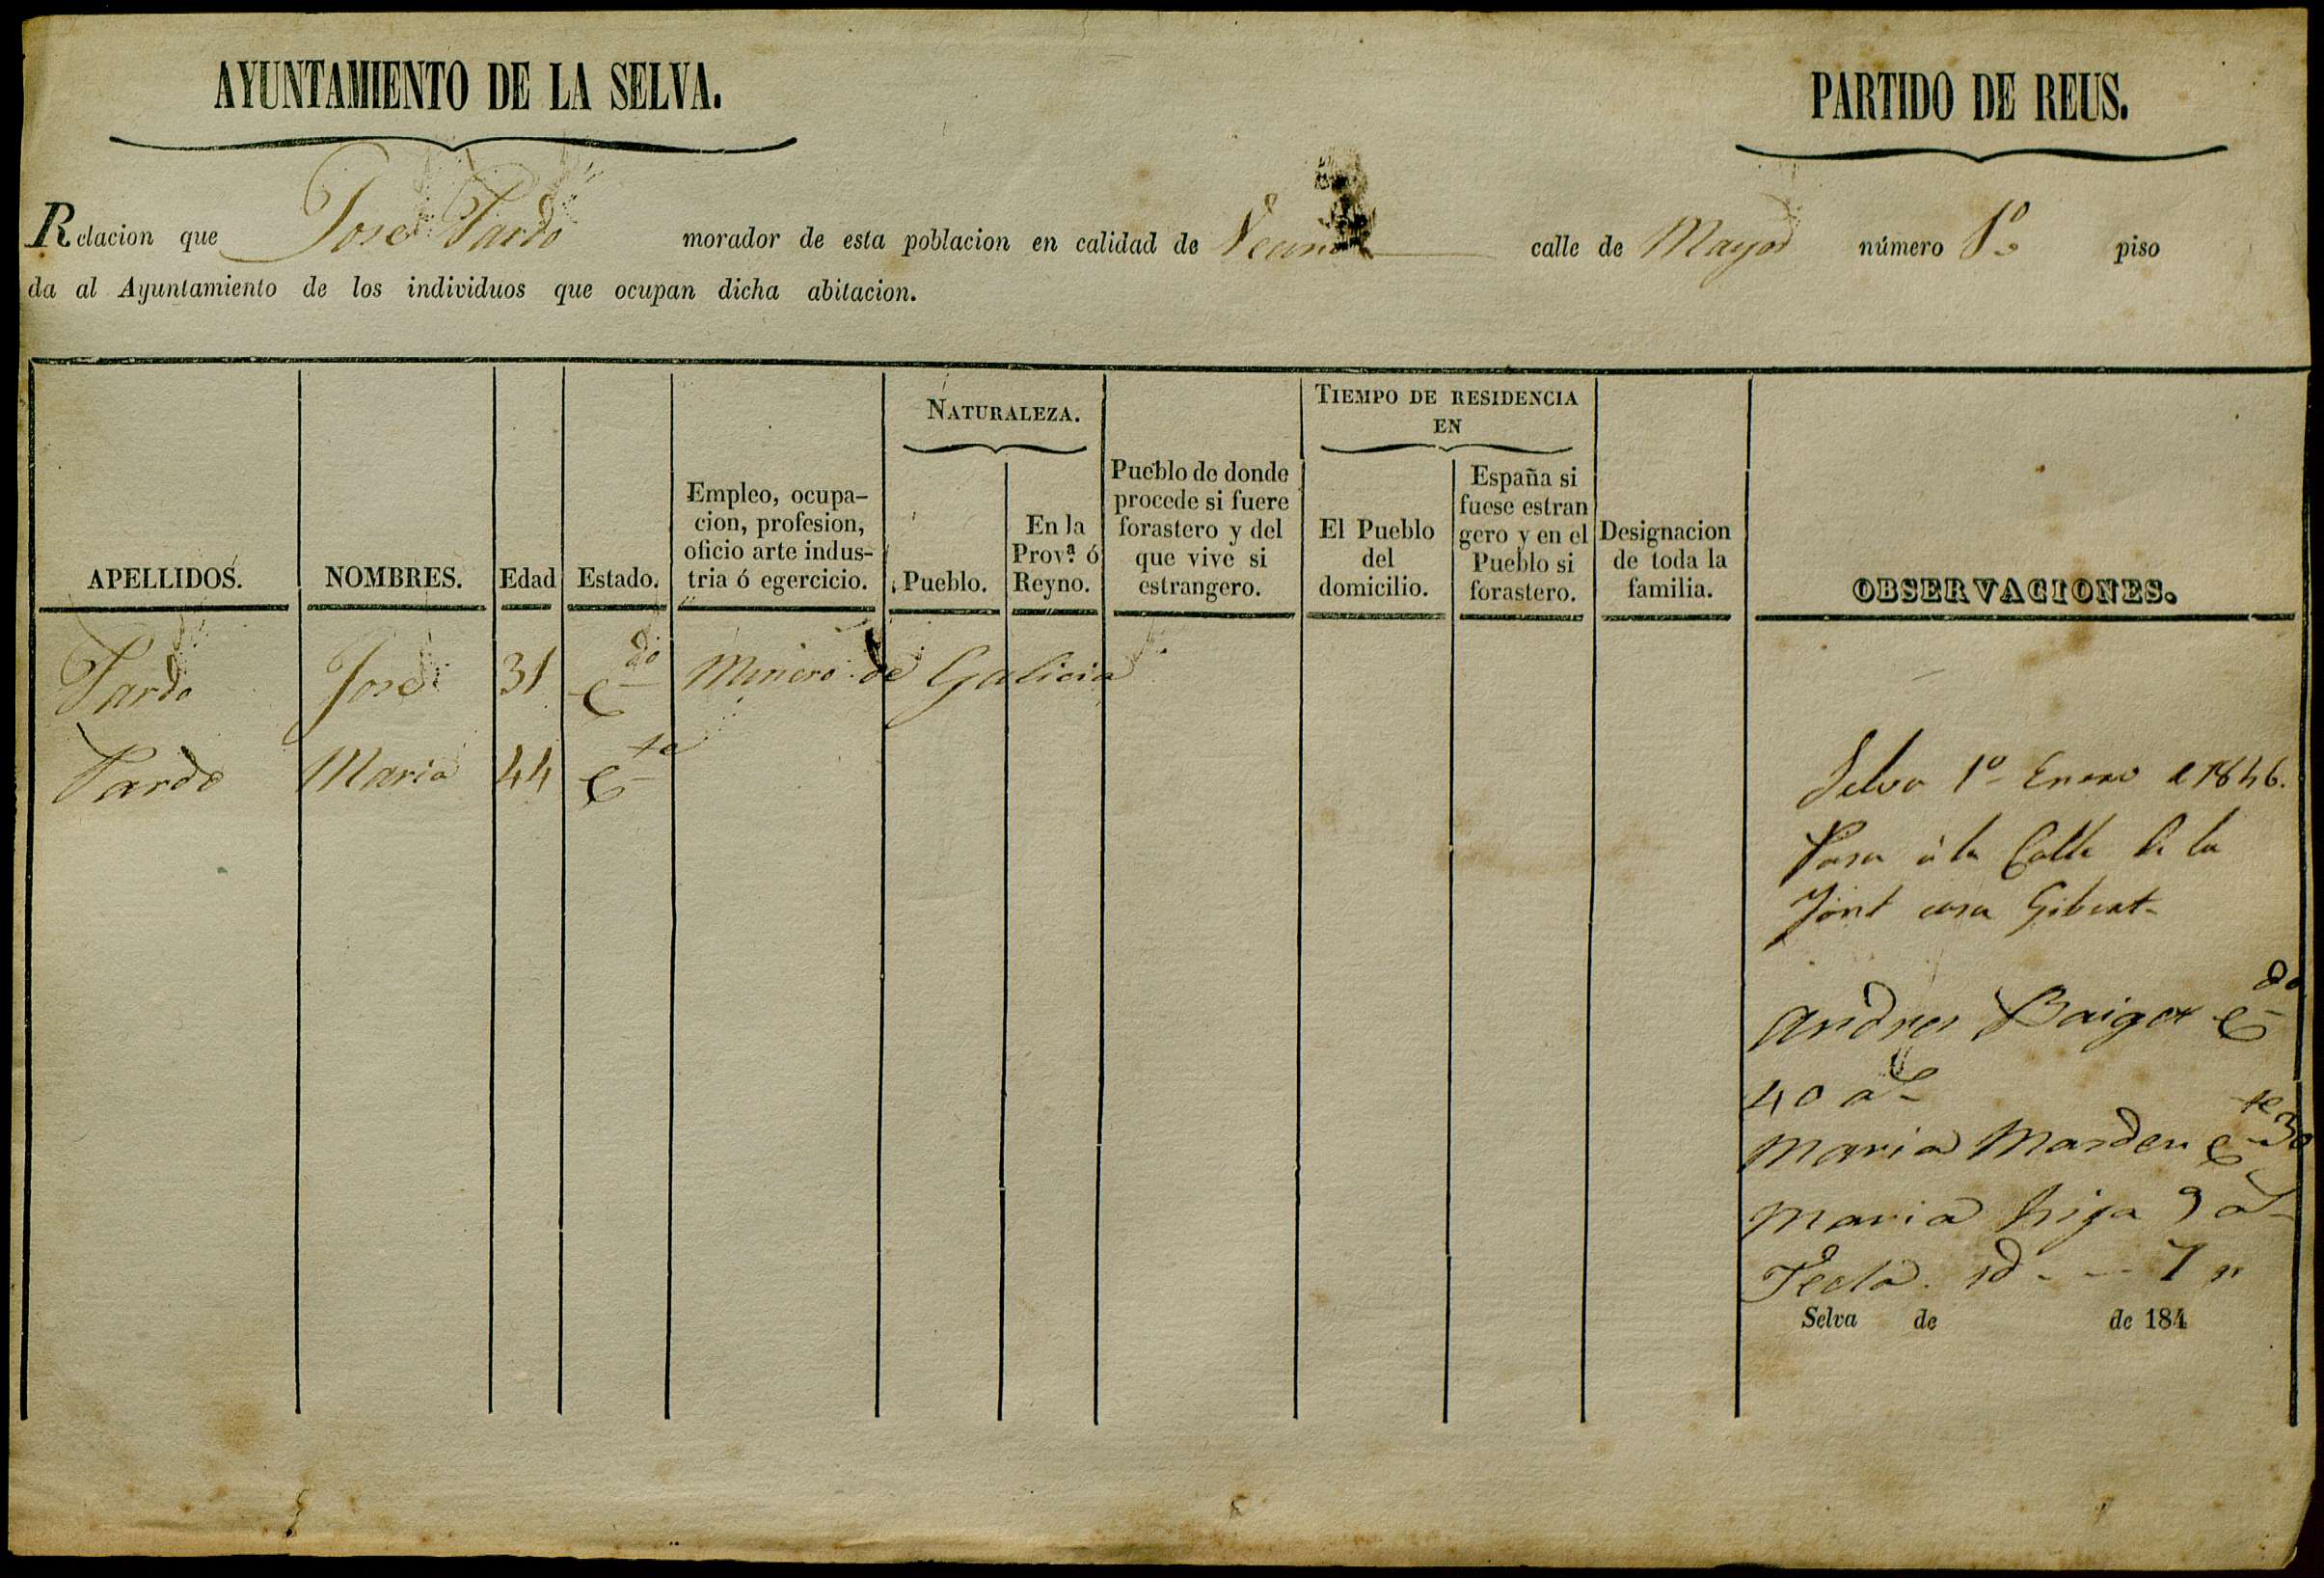 AYUNTAMIENTO DE LA SELVA.
PARTIDO DE REUS.
Relacion que Jose Pardo morador de esta poblacion en calidad de calle de Mayor número 1º piso
da al Ayuntamiento de los individuos que ocupan dicha abitacion.
APELLIDOS.
NOMBRES.
Edad
Estado.
Empleo, ocupa-
cion, profesion,
oficio arte indus-
tria ó egercicio.
NATURALEZA.
Pueblo.
En la
Prov.ª ó
Reyno.
Pueblo de donde
procede si fuere
forastero y del
que vive si
estrangero.
TIEMPO DE RESIDENCIA
EN
El Pueblo
del
domicilio.
España si
fuese estran
gero y en el
Pueblo si
forastero.
Designacion
de toda la
familia.
OBSERVACIONES.
Pardo Jose 31 C.do Minero de Galicia
Pardo Maria 44 C.ta
Selva 1º Enero 1846.
Pasa á la Calle de la
Font casa Gibert
Andres Baiget C.do
40 a.s
Maria C.ta 30
Maria hija 9 a.s
Tecla id - - - 7 "
Selva de de 184